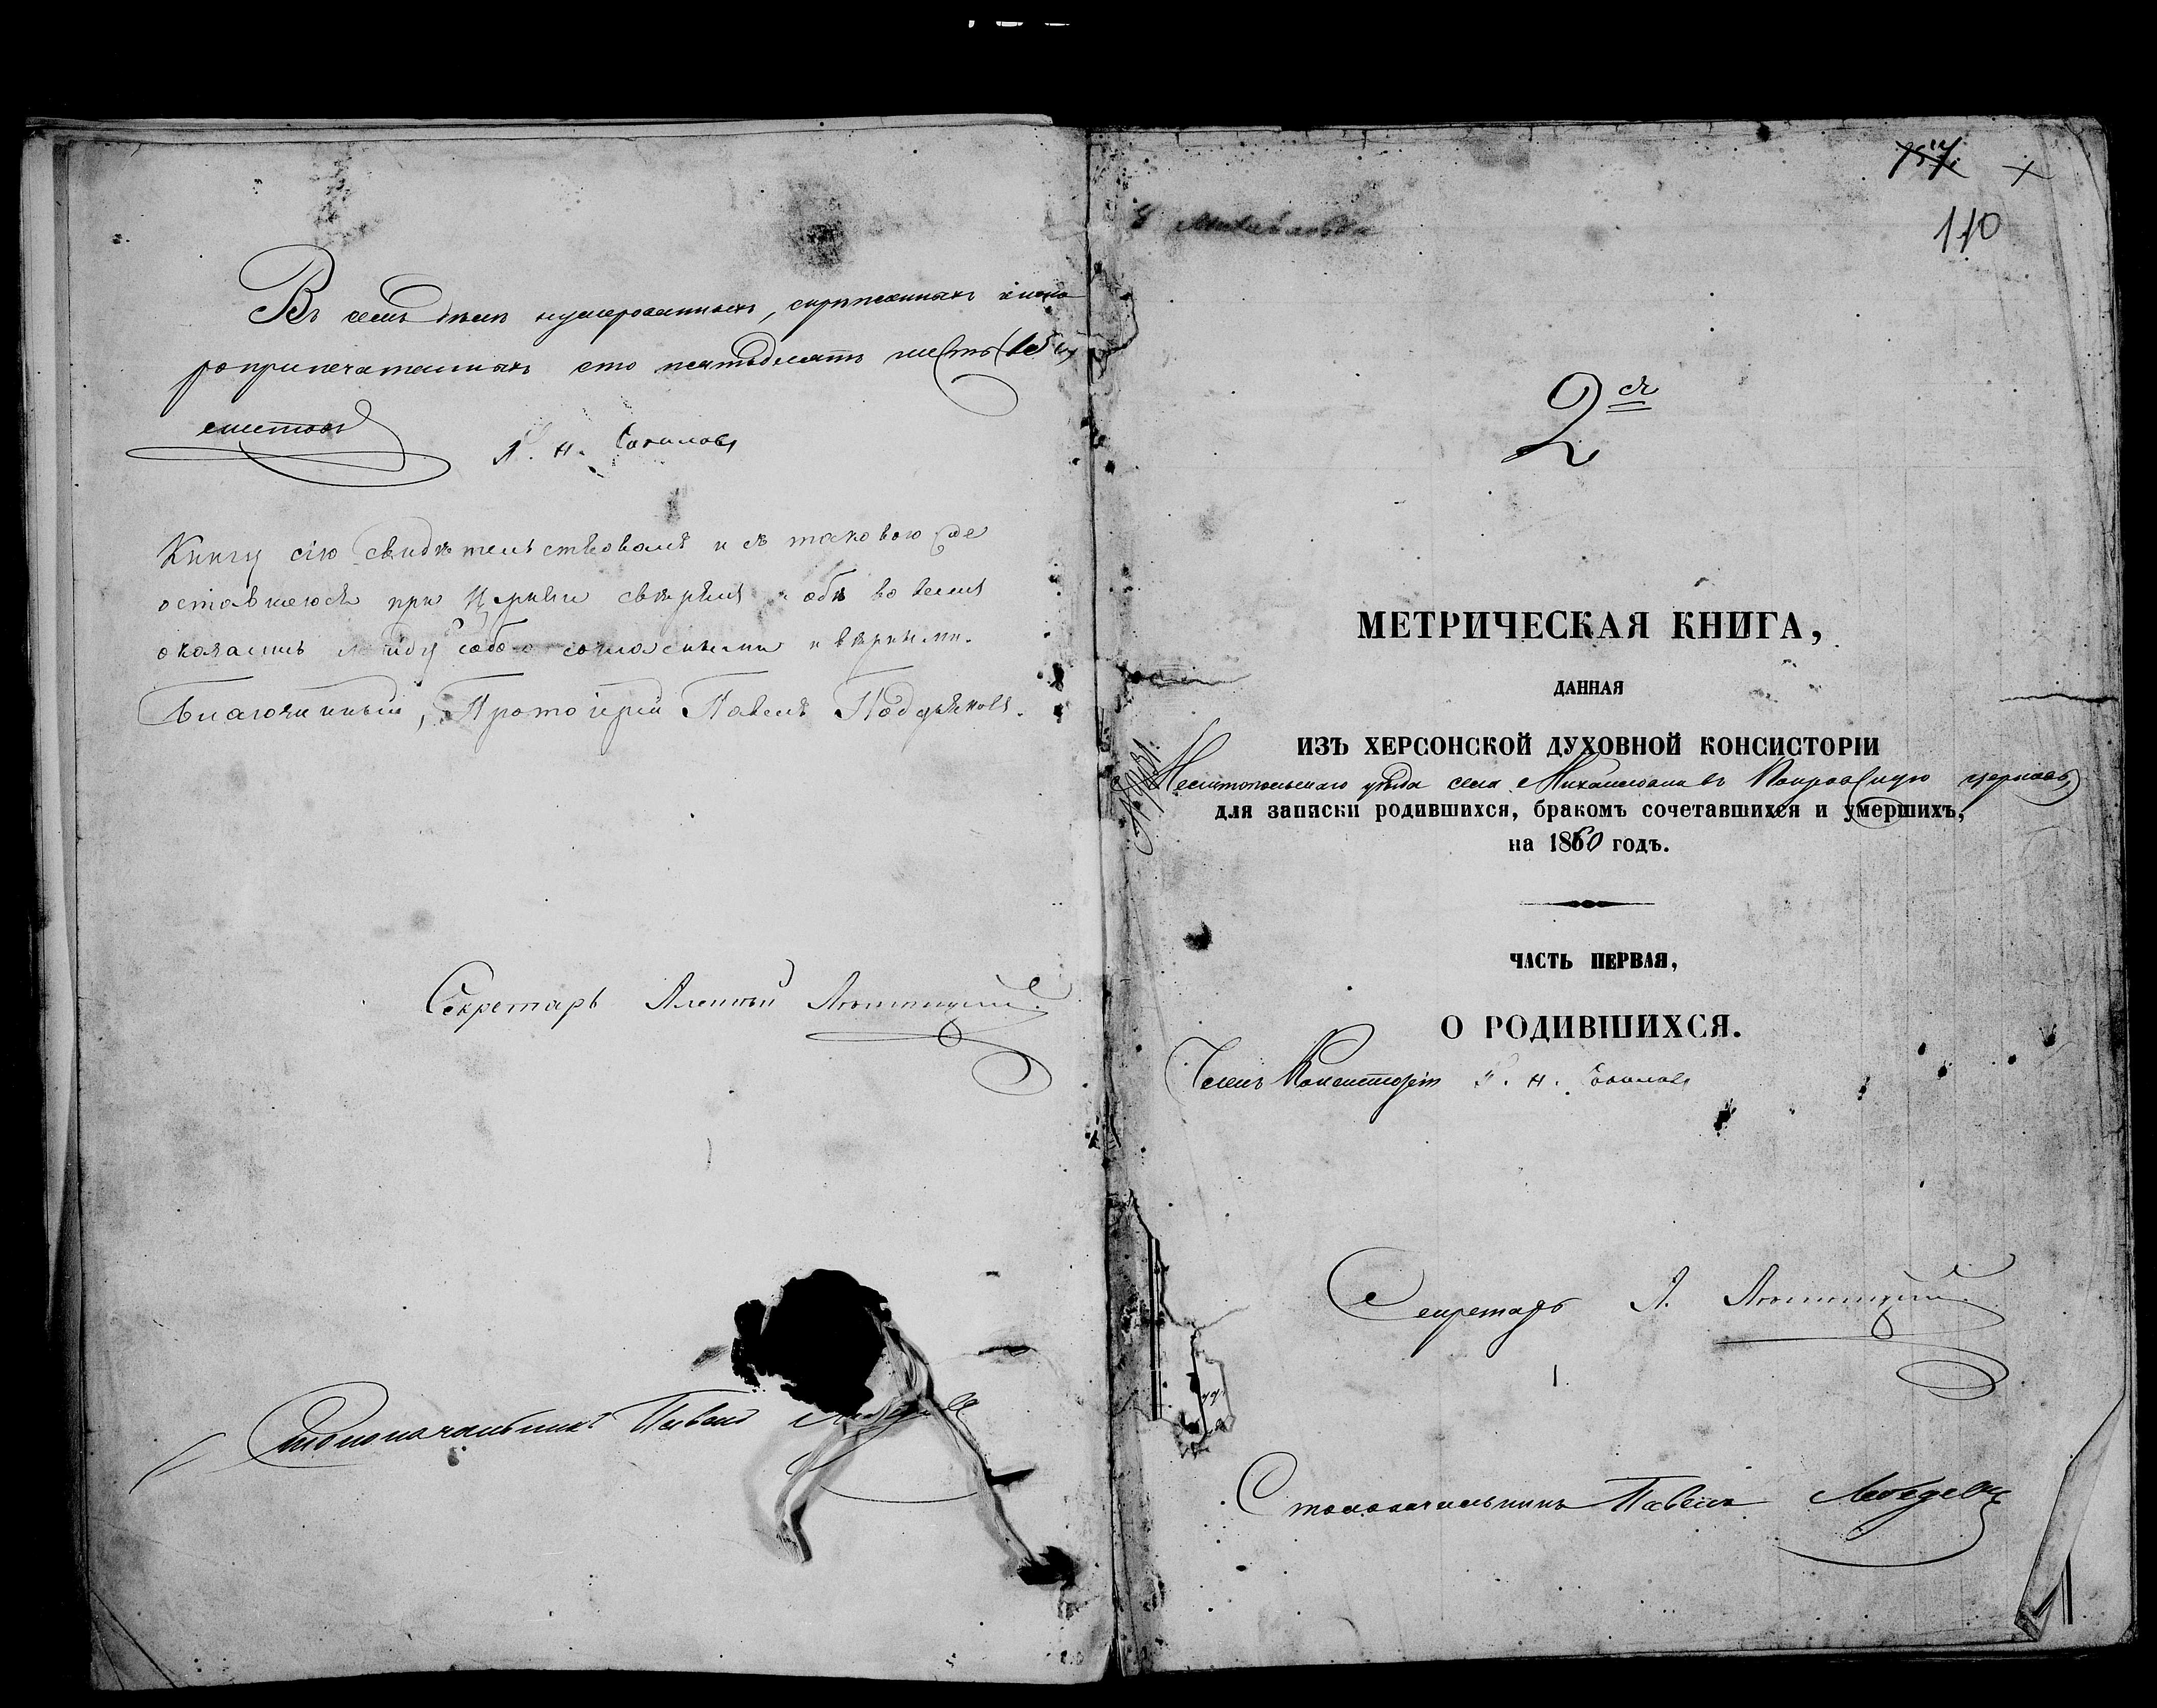 Въ семъ дѣлѣ нумерованныхъ, скрѣпленныхъ и шну
ропрпечатанныхъ сто пятьдесятъ шесть (156)
листовъ
П. Н. Соколовъ
Книгу сію свидѣтельствовалъ и съ таковою же
оставшеюся при Церкви свѣрялъ и обѣ во всемъ
оказались между собою согласными и вѣрными.
Благочинный, Протоіерей Павелъ
Секретарь Алексѣй
Столоначальникъ Павелъ
110
2ая
МЕТРИЧЕСКАЯ КНИГА,
ДАННАЯ
ИЗЪ ХЕРСОНСКОЙ ДУХОВНОЙ КОНСИСТОРІИ
Мелитопольскаго уѣзда села Михайловки въ Покровскую церковь
для записки родившихся, бракомъ сочетавшихся и умершихъ,
на 1860 годъ.
ЧАСТЬ ПЕРВАЯ,
О РОДИВШИХСЯ.
Членъ Консисторіи П. Н. Соколовъ
Секретарь А.
1.
Столоначальникъ Павелъ Лебедевъ